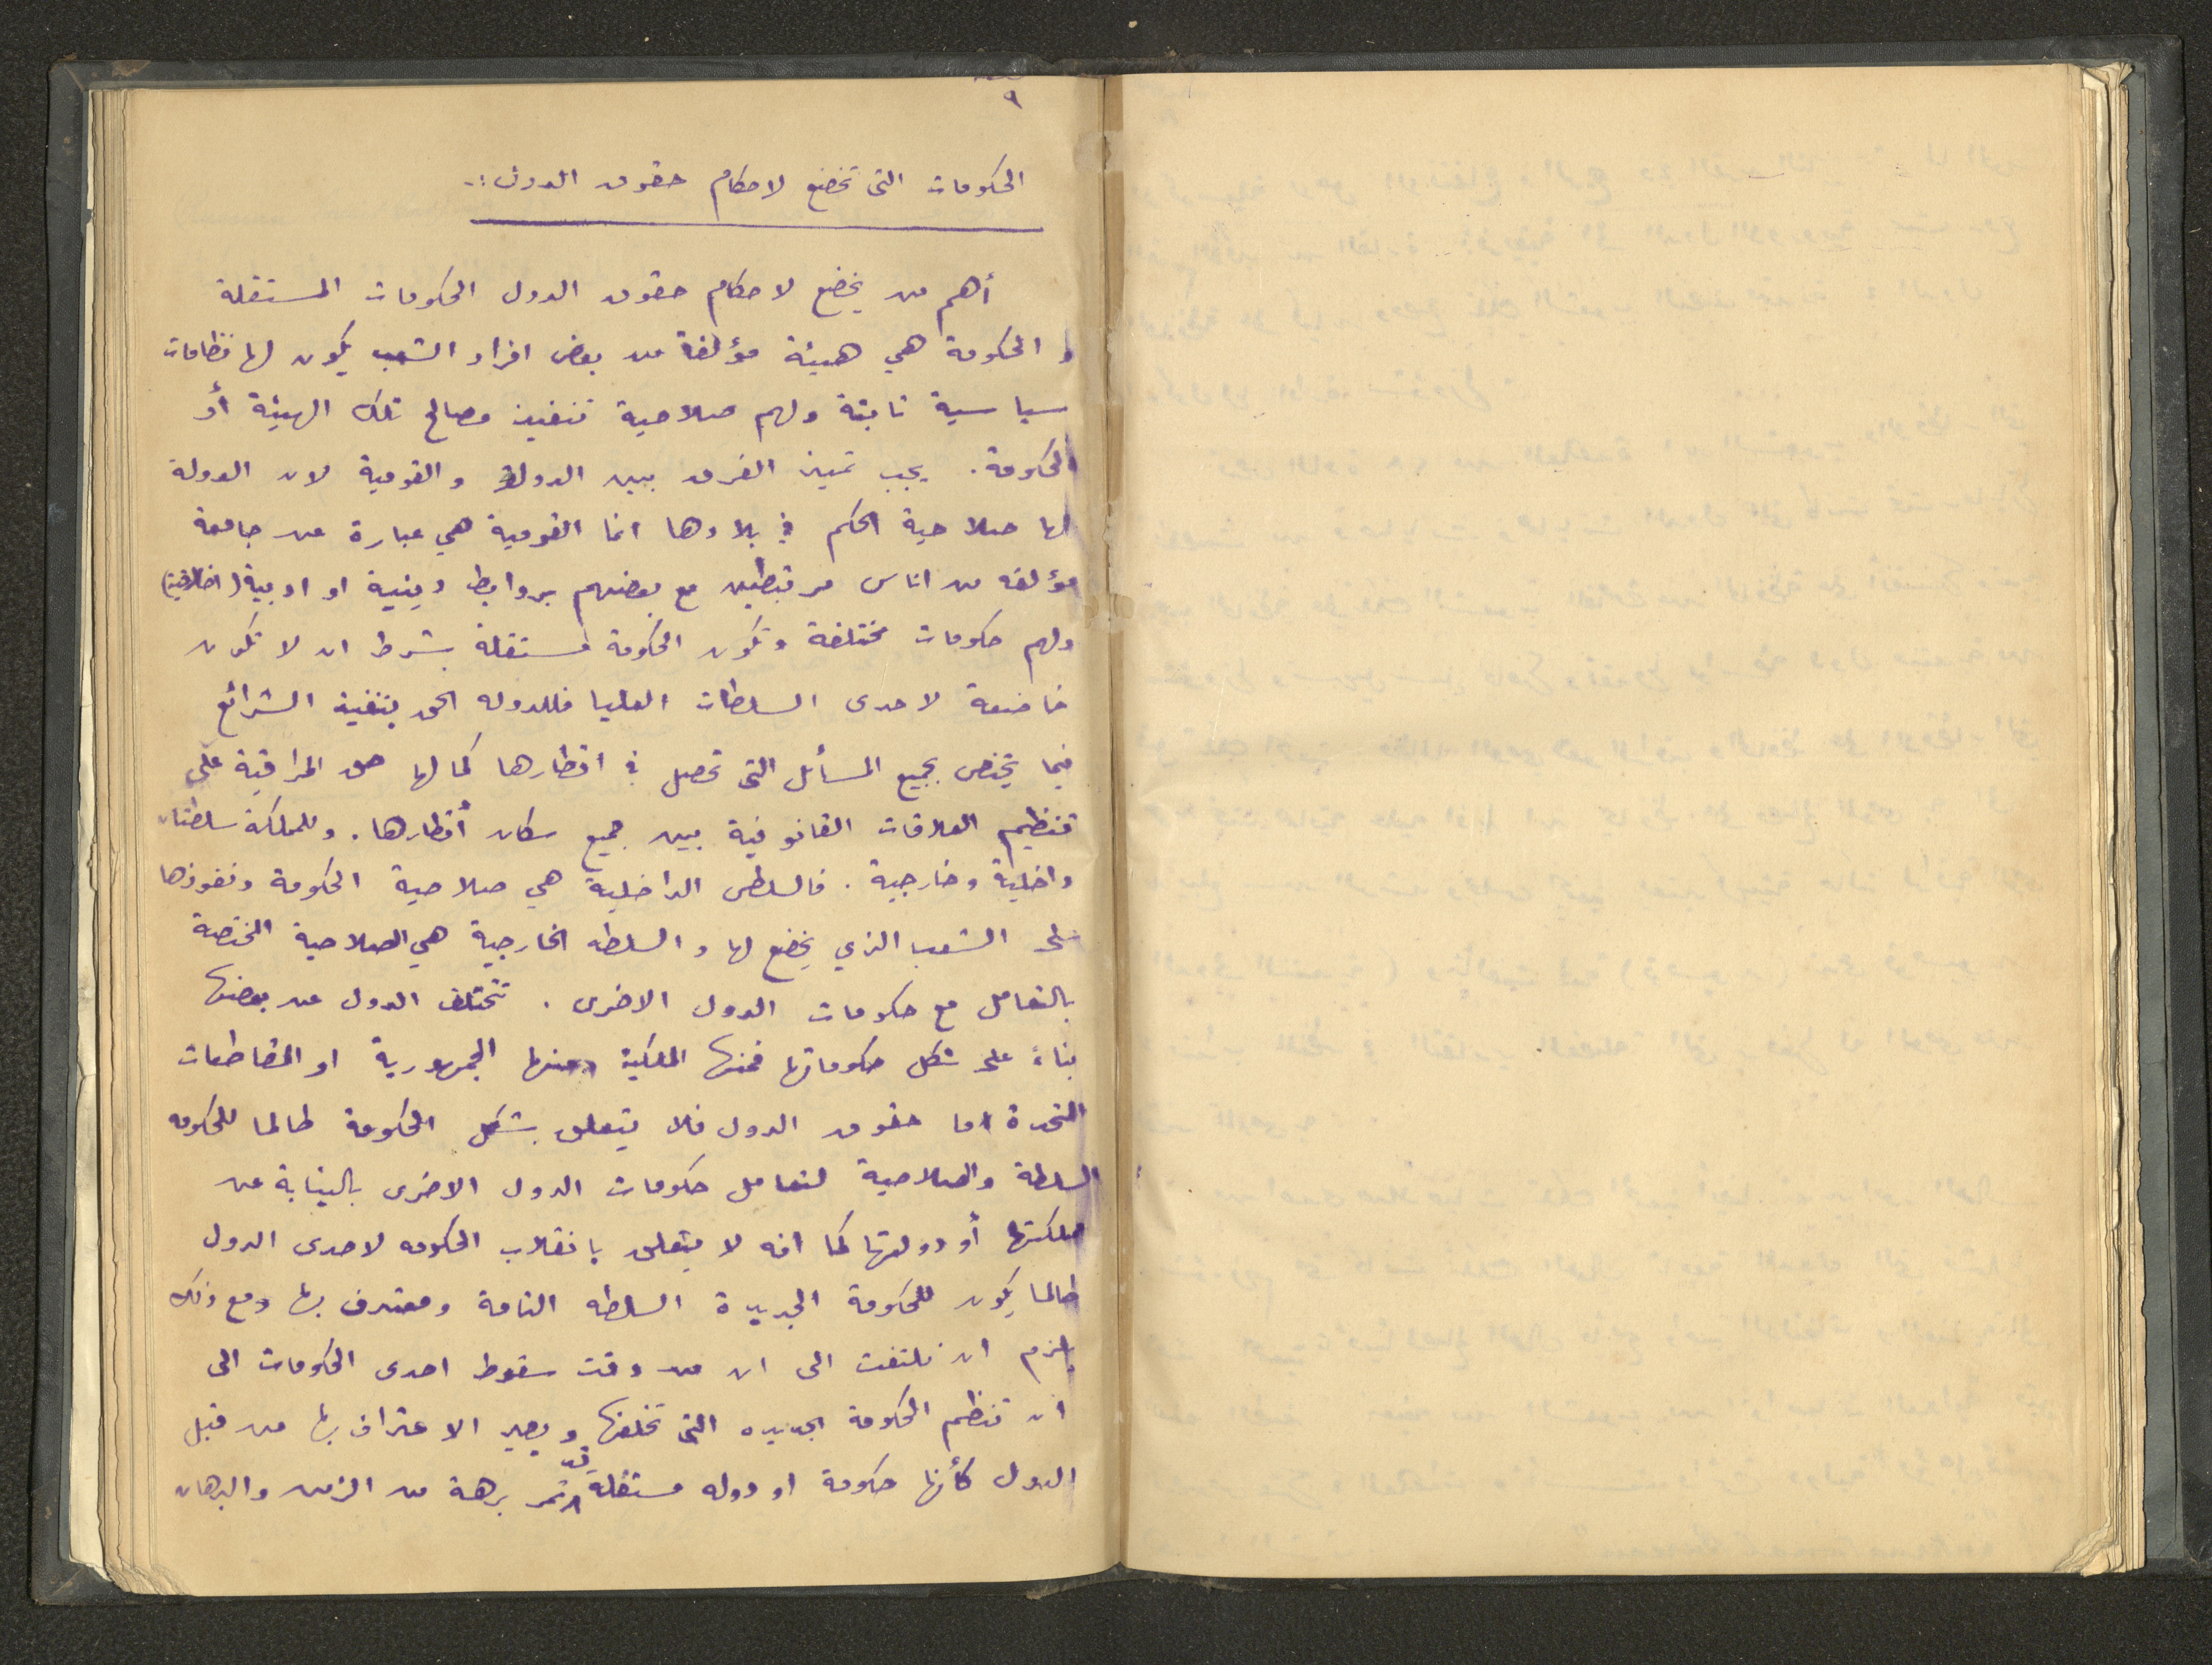 ٩
الحكومات التى تخضع لاحكام حقوق الدول :.
أهم من يخضع لاحكام حقوق الدول الحكومات المستقلة
و الحكومة هي هيئة مؤلفة من بعض افراد الشعب يكون لها نظامات
سياسية ثابتة ولهم صلاحية تنفيذ مصالح تلك الهيئة أو
الحكومة . يجب تمييز الفرق بين الدولة والقومية لان الدولة
لها صلاحية الحكم في بلادها انما القومية هي عبارة عن جامعة
مؤلفه من اناس مرتبطين مع بعضهم بروابط دينية او ادبية (اخلاقية)
ولهم حكومات مختلفة وتكون الحكومة مستقلة بشرط ان لا تكون
خاضعة لاحدى السلطات العليا فللدوله الحق بتنفيذ الشرائع
فيما يختص بجميع المسائل التى تحصل في اقطارها كما لها حق المراقبة على
تنظيم العلاقات القانونية بين جميع سكان أقطارها . وللمملكة سلطتان
داخلية وخارجية . فالسلطه الداخلية هي صلاحية الحكومة ونفوذها
على الشعب الذي يخضع لها والسلطه الخارجية هي الصلاحية المختصة
بالتعامل مع حكومات الدول الاخرى . تختلف الدول عن بعضها
بناءً على شكل حكوماتها فمنها الملكية ومنها الجمهورية او المقاطعات
المتحدة اما حقوق الدول فلا يتعلق بشكل الحكومة طالما للحكومه
السلطة والصلاحية لتعامل حكومات الدول الاخرى بالنيابة عن
مملكتها أو دولتها كما انه لا يتعلق بانقلاب الحكومه لاحدى الدول
طالما يكون للحكومة الجديدة السلطه التامة ومعترف بها ومع ذلك
يلزم ان نلتفت الى ان من وقت سقوط احدى الحكومات الى
ان تنظم الحكومة الجديده التى تخلفها ويصير الاعتراف بها من قبل
الدول كأنها حكومة او دوله مستقلة قد تمر برهة من الزمن والبرهان